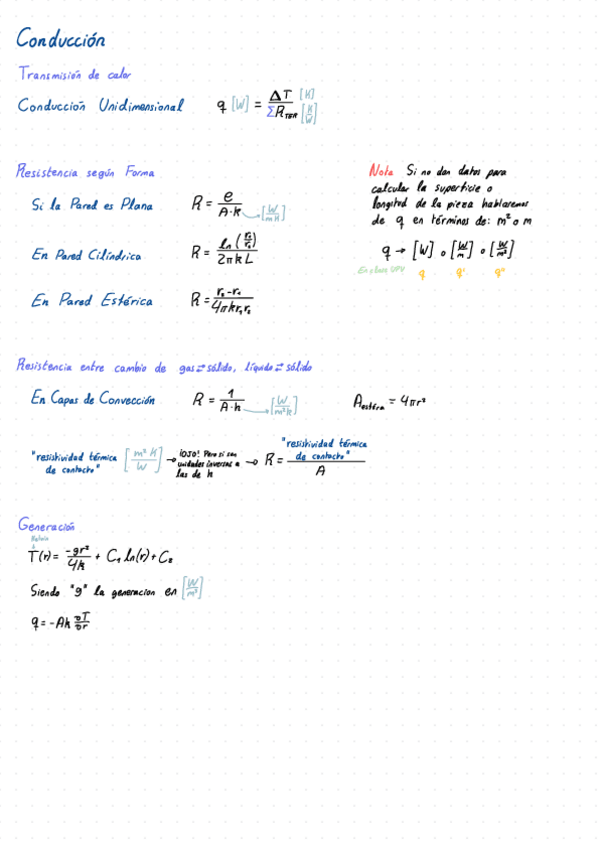 Conducción
Transmisión de calor
Conducción Unidimensional q [W] = ΔT [K] / ΣR_TER [K/W]
Resistencia según Forma
Si la Pared es Plana R = e / A·k → [W/mK]
En Pared Cilíndrica R = ln(r₂/r₁) / 2πkL
En Pared Esférica R = r₂-r₁ / 4πkr₁r₂
Nota Si no dan datos para
calcular la superficie o
longitud de la pieza hablaremos
de q en términos de: m² o m
q → [W] o [W/m] o [W/m²]
En clase UPV q q' q''
Resistencia entre cambio de gas⇄sólido, líquido⇄sólido
En Capas de Convección R = 1 / A·h → [W/m²K] A_esfera = 4πr²
"resistividad térmica de contacto" [m² K / W] → ¡OJO! Pero si son unidades inversas a las de h → R = "resistividad térmica de contacto" / A
Generación
T(r) = -gr² / 4k + C₁ ln(r) + C₂
Siendo "g" la generacion en [W/m³]
q = -Ak ∂T/∂r